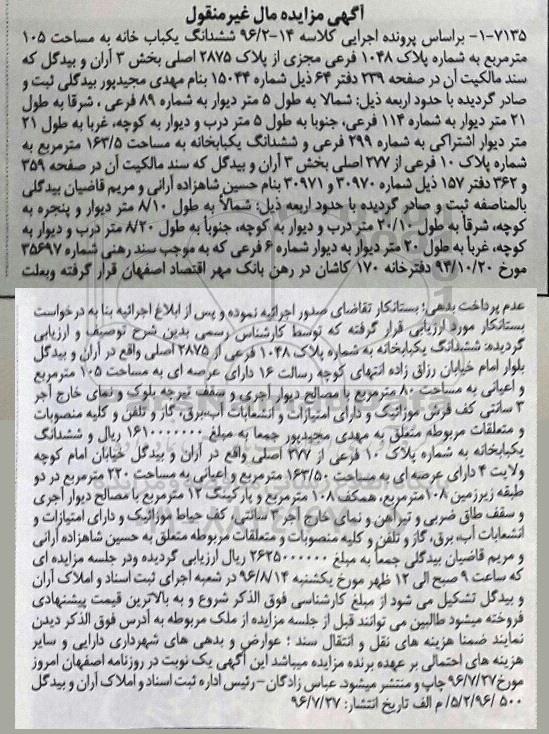 آگهی مزایده مال غیرمنقول
۷۱۳۵-۱- براساس پرونده اجرایی کلاسه ۱۴-۹۶/۲ ششدانگ یکباب خانه به مساحت ۱۰۵
مترمربع به شماره پلاک ۱۰۴۸ فرعی مجزی از پلاک ۲۸۷۵ اصلی بخش ۳ آران و بیدگل که
سند مالکیت آن در صفحه ۲۳۹ دفتر ۶۴ ذیل شماره ۱۵۰۳۴ بنام مهدی مجیدپور بیدگلی ثبت و
صادر گردیده با حدود اربعه ذیل: شمالا به طول ۵ متر دیوار به شماره ۸۹ فرعی ، شرقا به طول
۲۱ متر دیوار به شماره ۱۱۴ فرعی، جنوبا به طول ۵ متر درب و دیوار به کوچه، غربا به طول ۲۱
متر دیوار اشتراکی به شماره ۲۹۹ فرعی و ششدانگ یکبابخانه به مساحت ۱۶۳/۵ مترمربع به
شماره پلاک ۱۰ فرعی از ۲۷۷ اصلی بخش ۳ آران و بیدگل که سند مالکیت آن در صفحه ۳۵۹
و ۳۶۲ دفتر ۱۵۷ ذیل شماره ۳۰۹۷۰ و ۳۰۹۷۱ بنام حسین شاهزاده آرانی و مریم قاضیان بیدگلی
بالمناصفه ثبت و صادر گردیده با حدود اربعه ذیل: شمالاً به طول ۸/۱۰ متر دیوار و پنجره به
کوچه، شرقاً به طول ۲۰/۱۰ متر درب و دیوار به کوچه، جنوباً به طول ۸/۲۰ متر درب و دیوار به
کوچه، غرباً به طول ۲۰ متر دیوار به دیوار شماره ۶ فرعی که به موجب سند رهنی شماره ۳۵۶۹۷
مورخ ۹۳/۱۰/۲۰ دفترخانه ۱۷۰ کاشان در رهن بانک مهر اقتصاد اصفهان قرار گرفته وبعلت
عدم پرداخت بدهی؛ بستانکار تقاضای صدور اجرائیه نموده و پس از ابلاغ اجرائیه بنا به درخواست
بستانکار مورد ارزیابی قرار گرفته که توسط کارشناس رسمی بدین شرح توصیف و ارزیابی
گردیده: ششدانگ یکبابخانه به شماره پلاک ۱۰۴۸ فرعی از ۲۸۷۵ اصلی واقع در آران و بیدگل
بلوار امام خیابان رزاق زاده انتهای کوچه رسالت ۱۶ دارای عرصه ای به مساحت ۱۰۵ مترمربع
و اعیانی به مساحت ۸۰ مترمربع با مصالح دیوار آجری و سقف تیرچه بلوک و نمای خارج آجر
۳ سانتی کف فرش موزائیک و دارای امتیازات و انشعابات آب،برق، گاز و تلفن و کلیه منصوبات
و متعلقات مربوطه متعلق به مهدی مجیدپور جمعا به مبلغ ۱۶۱۰۰۰۰۰۰۰ ریال و ششدانگ
یکبابخانه به شماره پلاک ۱۰ فرعی از ۲۷۷ اصلی واقع در آران و بیدگل خیابان امام کوچه
ولایت ۴ دارای عرصه ای به مساحت ۱۶۳/۵۰ مترمربع و اعیانی به مساحت ۲۲۰ مترمربع در دو
طبقه زیرزمین ۱۰۸مترمربع، همکف ۱۰۸ مترمربع و پارکینگ ۱۲ مترمربع با مصالح دیوار آجری
و سقف طاق ضربی و تیرآهن و نمای خارج آجر ۳ سانتی کف حیاط موزائیک و دارای امتیازات و
انشعابات آب، برق، گاز و تلفن و کلیه منصوبات و متعلقات مربوطه متعلق به حسین شاهزاده آرانی
و مریم قاضیان بیدگلی جمعاً به مبلغ ۲۶۲۵۰۰۰۰۰۰ ریال ارزیابی گردیده ودر جلسه مزایده ای
که ساعت ۹ صبح الی ۱۲ ظهر مورخ یکشنبه ۹۶/۸/۱۴ در شعبه اجرای ثبت اسناد و املاک آران
و بیدگل تشکیل می شود از مبلغ کارشناسی فوق الذکر شروع و به بالاترین قیمت پیشنهادی
فروخته میشود طالبین می توانند قبل از جلسه مزایده از ملک مربوطه به آدرس فوق الذکر دیدن
نمایند ضمنا هزینه های نقل و انتقال سند ؛ عوارض و بدهی های شهرداری دارایی و سایر
هزینه های احتمالی بر عهده برنده مزایده میباشد این آگهی یک نوبت در روزنامه اصفهان امروز
مورخ۹۶/۷/۲۷ چاپ و منتشر میشود. عباس زادگان-رئیس اداره ثبت اسناد و املاک آران و بیدگل
۵۰۰ /۵/۲/۹۶/ م الف تاریخ انتشار: ۹۶/۷/۲۷